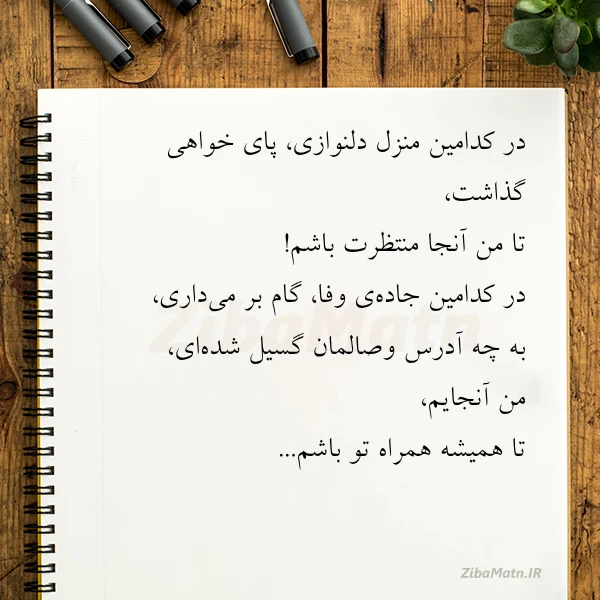 در کدامین منزل دلنوازی، پای خواهی
گذاشت،
تا من آنجا منتظرت باشم!
در کدامین جاده‌ی وفا، گام بر می‌داری،
به چه آدرس وصالمان گسیل شده‌ای،
من آنجایم،
تا همیشه همراه تو باشم...
ZibaMatn
ZibaMatn.IR